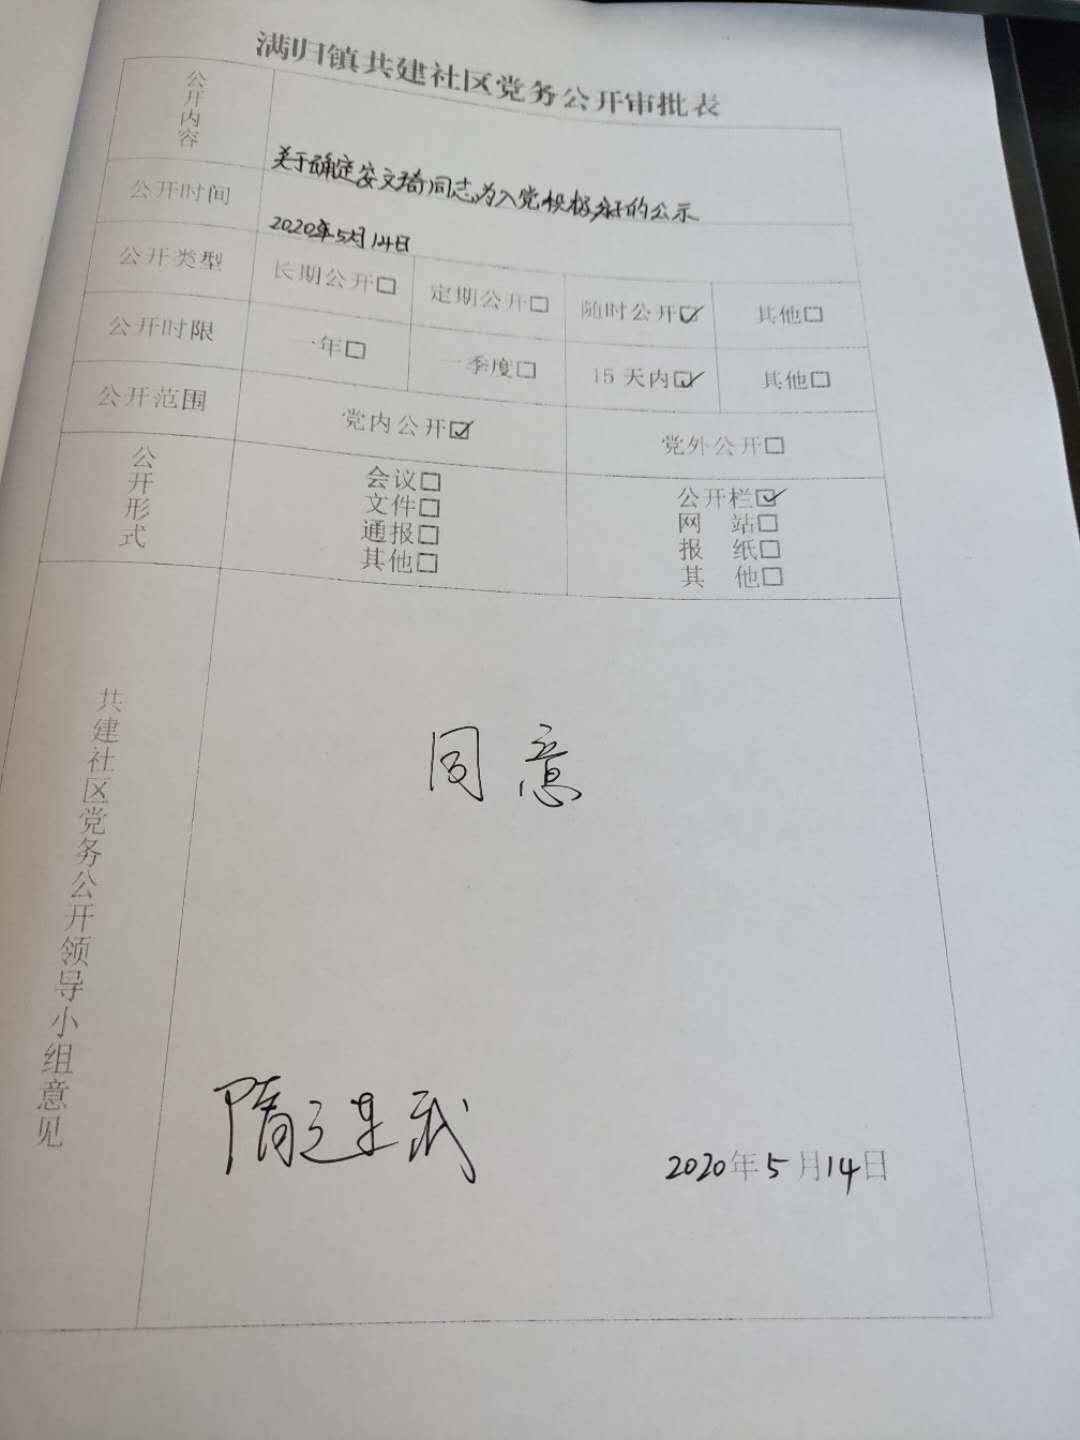 满归镇共建社区党务公开审批表
公开内容
关于确定安文琦同志为入党积极分子的公示
公开时间
2020年5月14日
公开类型 长期公开□ 定期公开□ 随时公开☑ 其他□
公开时限 一年□ 一季度□ 15天内☑ 其他□
公开范围 党内公开☑ 党外公开□
公开形式
会议□ 公开栏☑
文件□ 网 站□
通报□ 报 纸□
其他□ 其 他□
共建社区党务公开领导小组意见
同意
隋连武
2020年5月14日